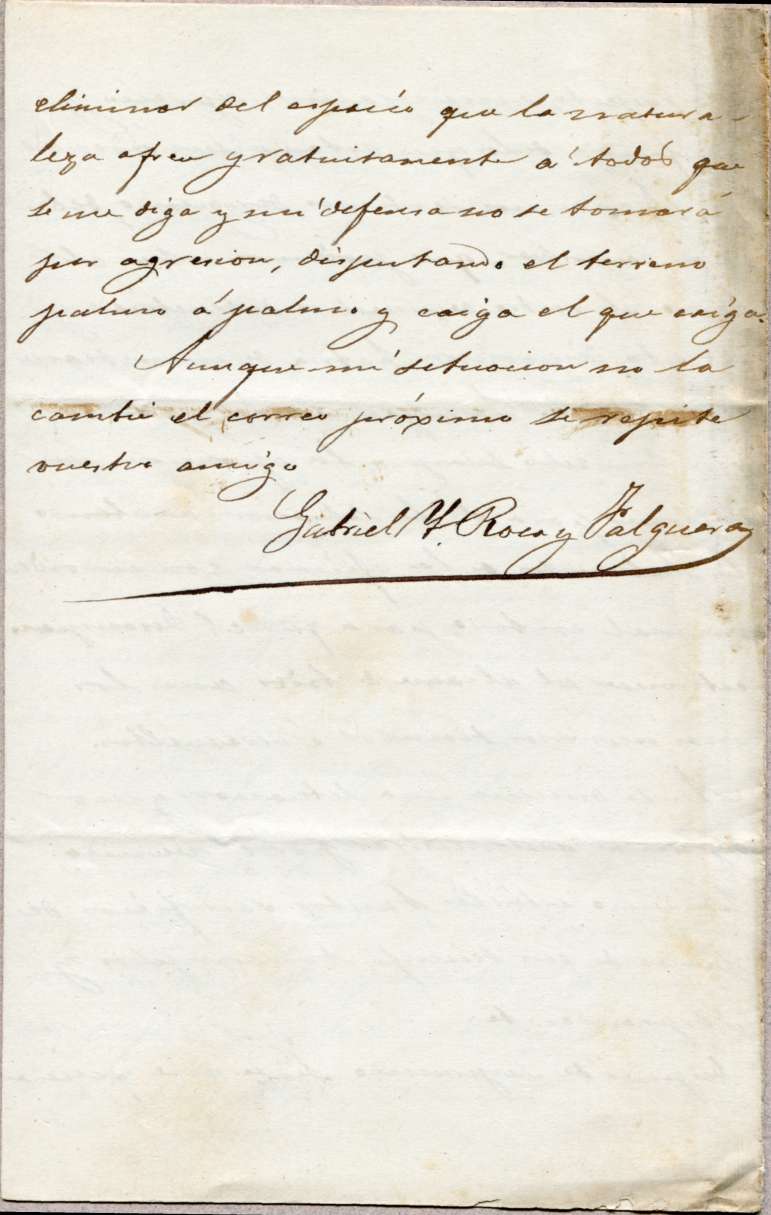 eliminar del espacio que la natura-
leza ofrece gratuitamente á todos que
se me diga y mi defensa no se tomará
por agresion, disputando el terreno
palmo á palmo y caiga el que caiga.
Aunque mi situacion no la
cambie el correo próximo se repite
vuestro amigo
Gabriel Y. Roca y Falguera